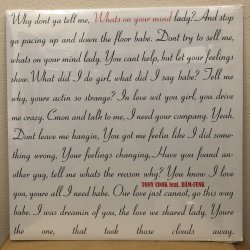 Why dont ya tell me, Whats on your mind lady? And stop
ya pacing up and down the floor babe. Dont try to sell me,
whats on your mind lady. You cant help, but let your feelings
show. What did I do girl, what did I say babe? Tell me
why, youre actin so strange? In love wit you girl, you drive
me crazy. Cmon and talk to me, I need your company. Yeah.
Dont leave me hangin. You got me feelin like I did some-
thing wrong, Your feelings changing, Have you found an-
other guy, tell me whats the reason why? You know I love
you, youre all I need babe. Our love just cannot, go this way
TONY COOK feat. DÂM-FUNK
babe. I was dreamin of you, the love we shared lady. Youre
the one, that took those clouds away.